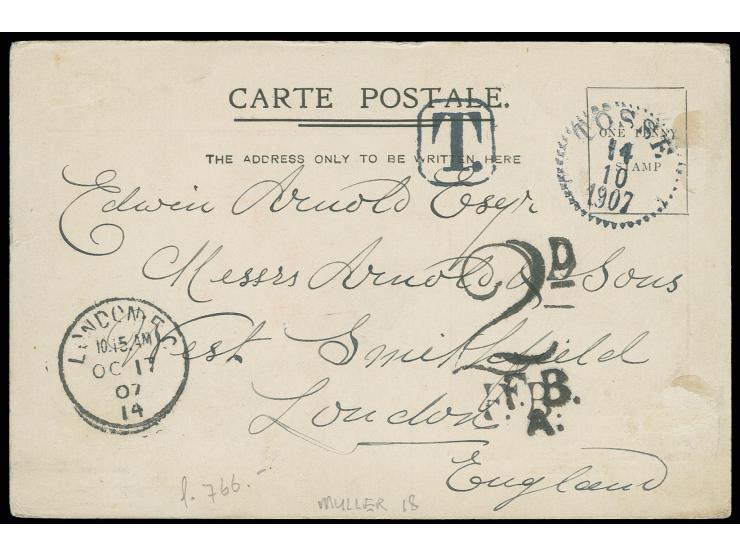 CARTE POSTALE.
T.
TOSSE
14
10
1907
ONE PENNY
STAMP
THE ADDRESS ONLY TO BE WRITTEN HERE
Edwin Arnold Esqr
Messrs Arnold & Sons
2D
West Smithfield
LONDON E.C
10.15 AM
OC 17
07
14
F.B.
A.
London
England
f. 766.-
MULLER 18